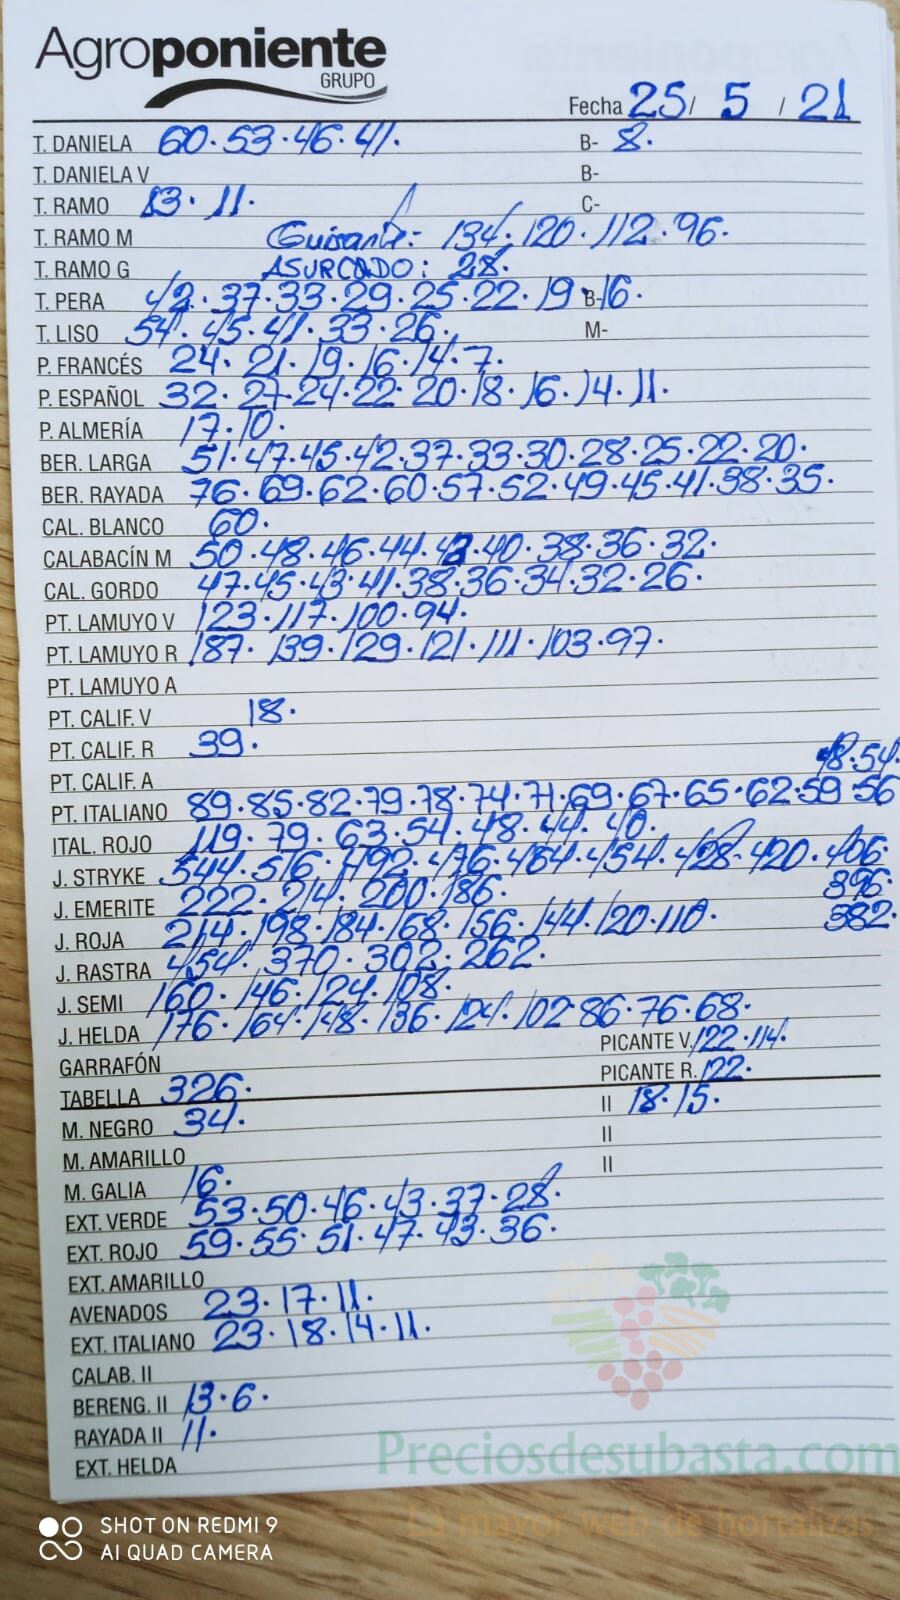 Agroponiente
GRUPO
Fecha 25/ 5 / 21
T. DANIELA 60·53·46·41· B- 8·
T. DANIELA V B-
T. RAMO 13· 11· C-
T. RAMO M Guisante: 134·120·112·96·
T. RAMO G ASURCADO: 28·
T. PERA 42·37·33·29·25·22·19· B- 16·
T. LISO 54·45·41·33·26· M-
P. FRANCÉS 24·21·19·16·14·7·
P. ESPAÑOL 32·27·24·22·20·18·16·14·11·
P. ALMERÍA 17·10·
BER. LARGA 51·47·45·42·37·33·30·28·25·22·20·
BER. RAYADA 76·69·62·60·57·52·49·45·41·38·35·
CAL. BLANCO 60·
CALABACÍN M 50·48·46·44·43·40·38·36·32·
CAL. GORDO 47·45·43·41·38·36·34·32·26·
PT. LAMUYO V 123·117·100·94·
PT. LAMUYO R 187·139·129·121·111·103·97·
PT. LAMUYO A
PT. CALIF. V 18·
PT. CALIF. R 39·
PT. CALIF. A 48·54·
PT. ITALIANO 89·85·82·79·78·74·71·69·67·65·62·59·56
ITAL. ROJO 119·79·63·54·48·44·40·
J. STRYKE 544·516·492·476·464·454·428·420·406·
J. EMERITE 222·214·200·186· 396·
J. ROJA 214·198·184·168·156·144·120·110· 382·
J. RASTRA 454·370·302·262·
J. SEMI 160·146·124·108·
J. HELDA 176·164·148·136·124·102·86·76·68·
GARRAFÓN PICANTE V. 122·114·
TABELLA 326· PICANTE R. 122·
M. NEGRO 34· II 18·15·
M. AMARILLO II
M. GALIA 16· II
EXT. VERDE 53·50·46·43·37·28·
EXT. ROJO 59·55·51·47·43·36·
EXT. AMARILLO
AVENADOS 23·17·11·
EXT. ITALIANO 23·18·14·11·
CALAB. II
BERENG. II 13·6·
RAYADA II 11·
EXT. HELDA
Preciosdesubasta.com
La mayor web de hortalizas
SHOT ON REDMI 9
AI QUAD CAMERA